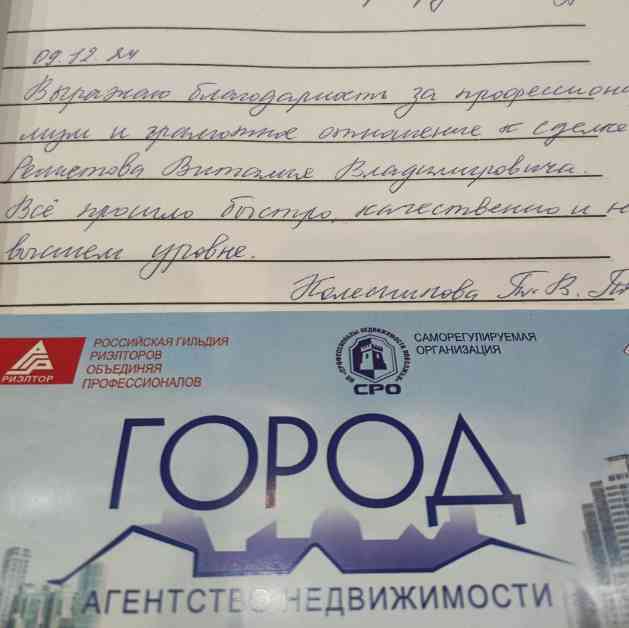 09.12.24
Выражаю благодарность за профессиона
лизм и грамотное отношение к сделке
Решетова Виталия Владимировича.
Всё прошло быстро, качественно и н
высшем уровне.
Колесникова Т.В.
РИЭЛТОР
РОССИЙСКАЯ ГИЛЬДИЯ
РИЭЛТОРОВ
ОБЪЕДИНЯЯ
ПРОФЕССИОНАЛОВ
СРО
САМОРЕГУЛИРУЕМАЯ
ОРГАНИЗАЦИЯ
ГОРОД
АГЕНТСТВО НЕДВИЖИМОСТИ